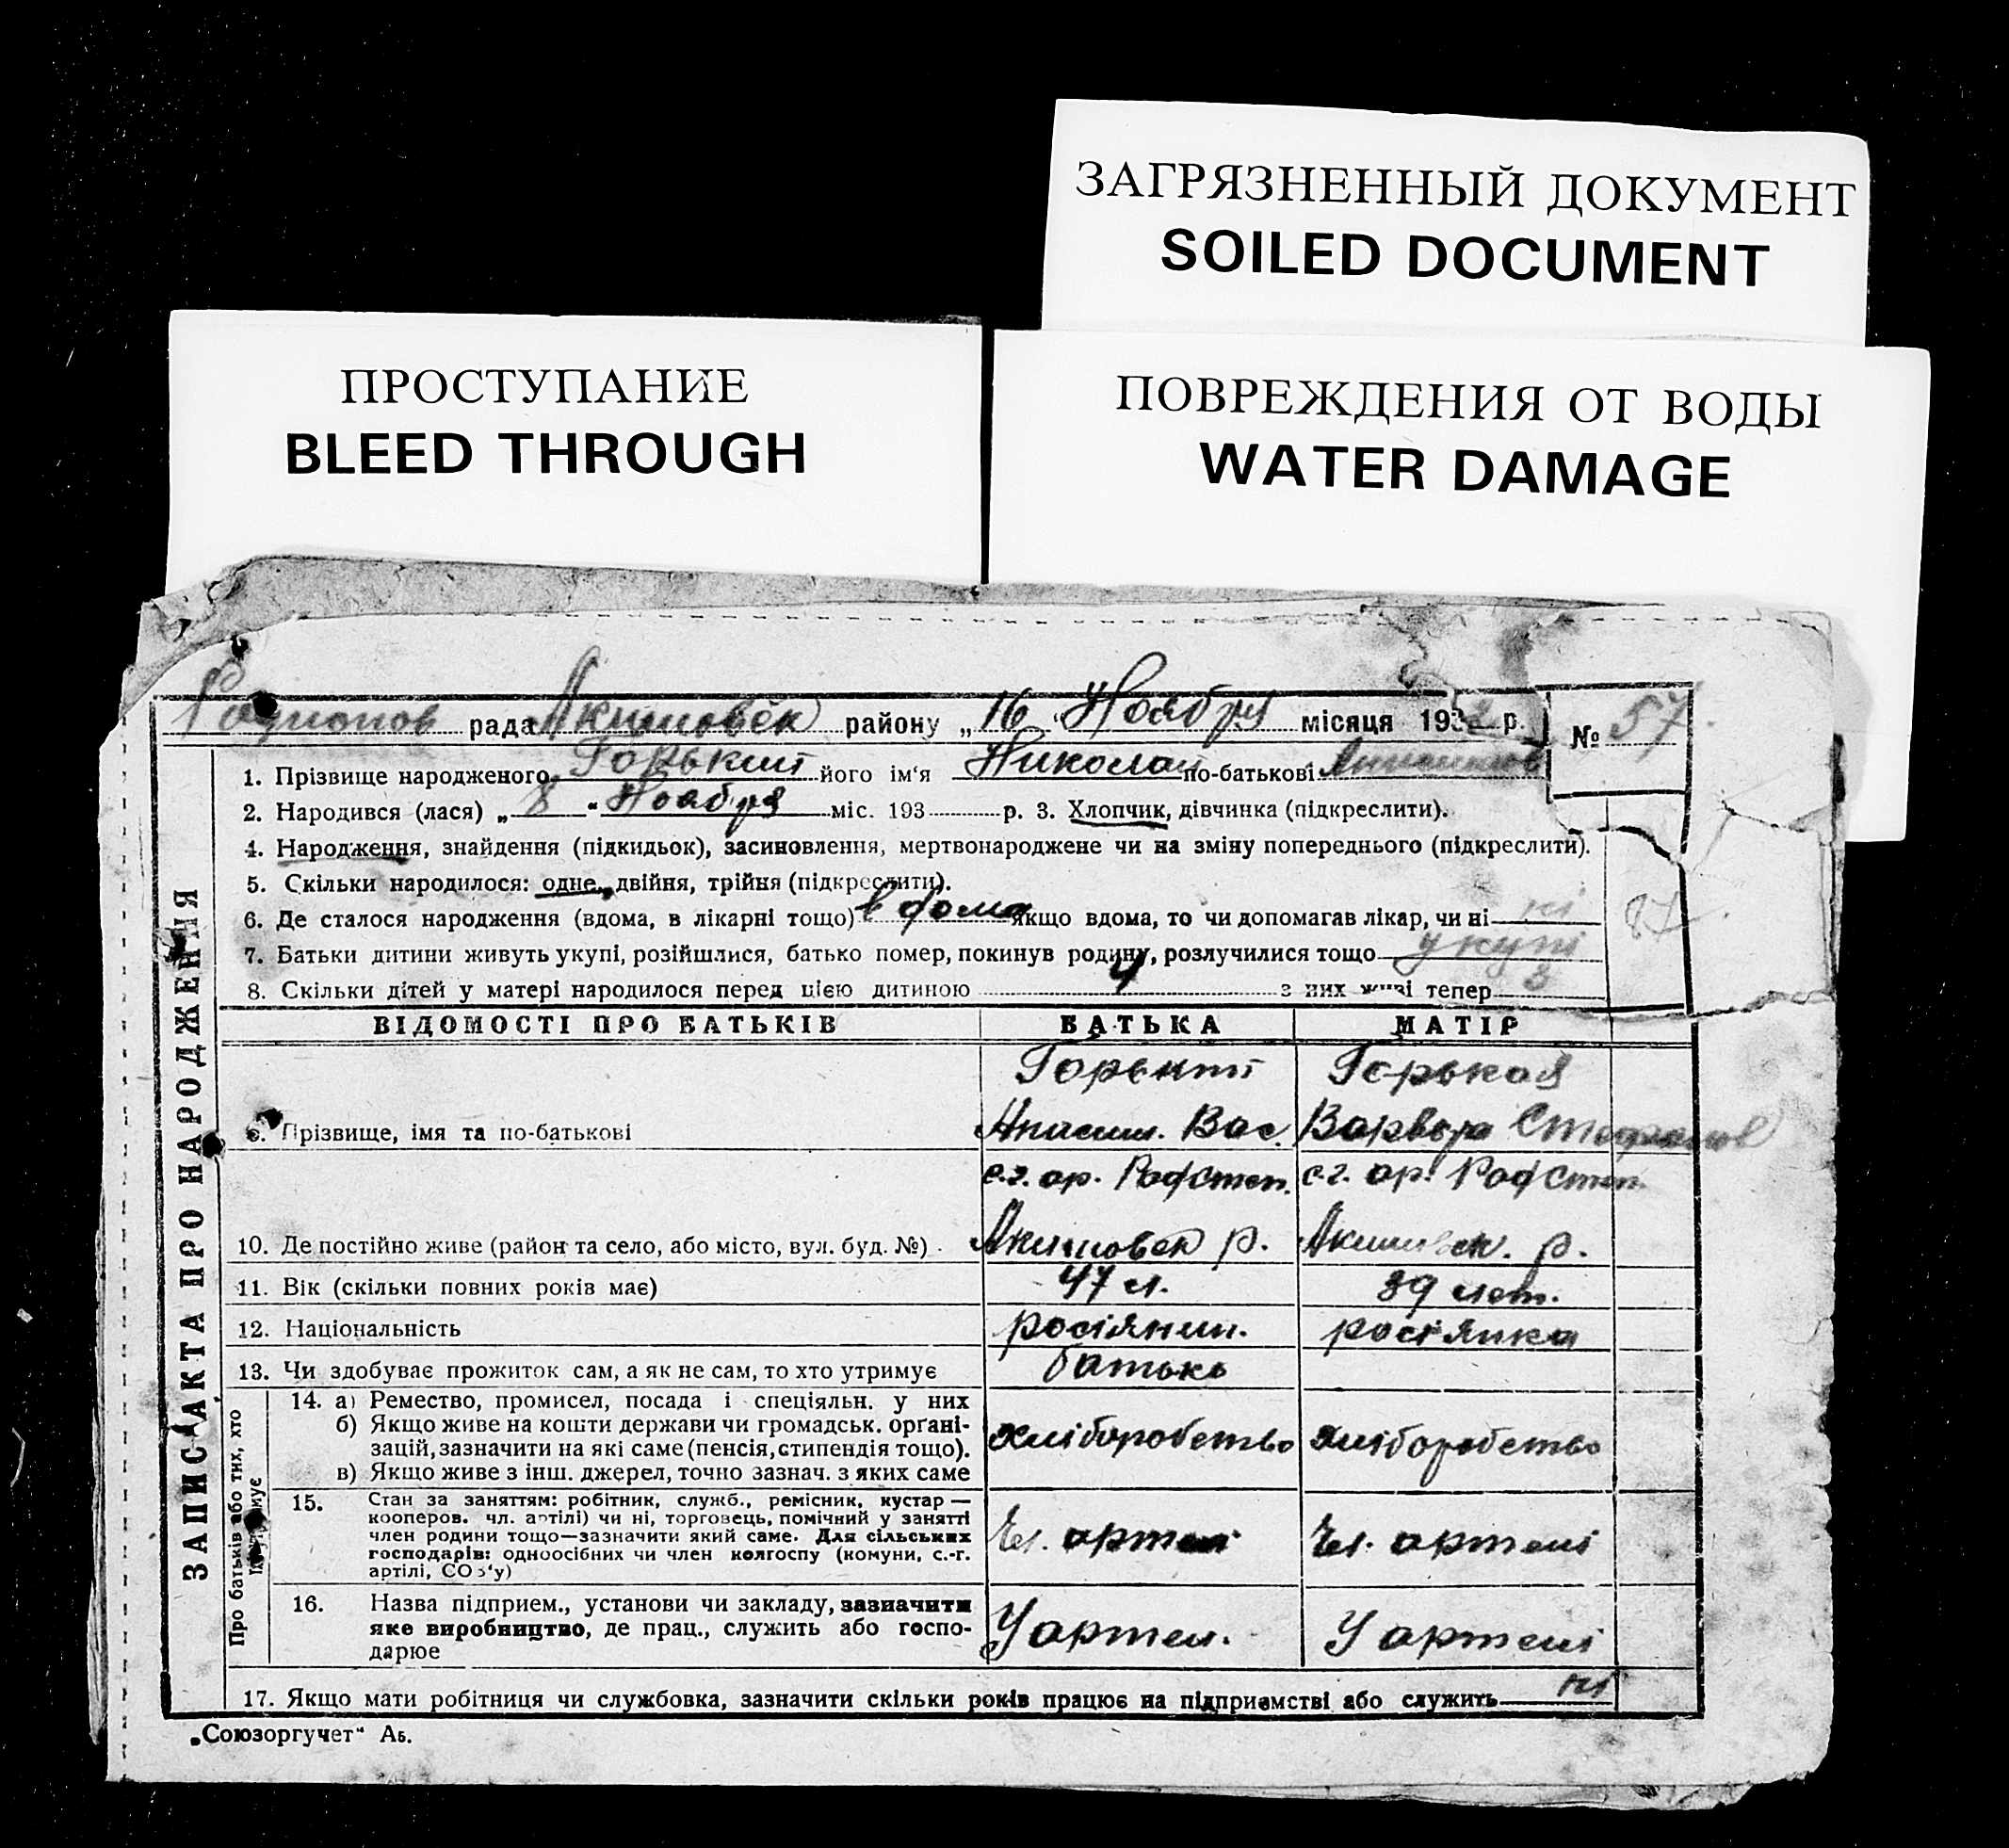 ЗАГРЯЗНЕННЫЙ ДОКУМЕНТ
SOILED DOCUMENT
ПРОСТУПАНИЕ
BLEED THROUGH
ПОВРЕЖДЕНИЯ ОТ ВОДЫ
WATER DAMAGE
Родионов рада Акимовск району „16“ Ноября місяця 1932 р. № 57
1. Прізвище народженого Горький його ім'я Николай по-батькові
2. Народився (лася) „8“ Ноября міс. 193 р. 3. Хлопчик, дівчинка (підкреслити).
4. Народження, знайдення (підкидьок), засиновлення, мертвонароджене чи на зміну попереднього (підкреслити).
5. Скільки народилося: одне, двійня, трійня (підкреслити).
6. Де сталося народження (вдома, в лікарні тощо) в дома якщо вдома, то чи допомагав лікар, чи ні ні
87
7. Батьки дитини живуть укупі, розійшлися, батько помер, покинув родину, розлучилися тощо укупі
8. Скільки дітей у матері народилося перед цією дитиною 4 з них живі тепер 3
ВІДОМОСТІ ПРО БАТЬКІВ БАТЬКА МАТІР
Горький Горькая
9. Прізвище, імя та по-батькові Вас. Варвара Стефанов
с.г. ар. Родстеп. с.г. ар. Родстеп.
10. Де постійно живе (район та село, або місто, вул. буд. №) Акимовск р. Акимовск. р.
11. Вік (скільки повних років має) 47 л. 39 лет.
12. Національність росіянин. росіянка
13. Чи здобуває прожиток сам, а як не сам, то хто утримує батько
14. а) Ремество, промисел, посада і спеціяльн. у них
б) Якщо живе на кошти держави чи громадськ. органі-
зацій, зазначити на які саме (пенсія, стипендія тощо). хліборобство хліборобство
в) Якщо живе з інш. джерел, точно зазнач. з яких саме
15. Стан за заняттям: робітник, служб., ремісник, кустар —
кооперов. чл. артілі) чи ні, торговець, помічний у занятті
член родини тощо—зазначити який саме. Для сільських
господарів: одноосібних чи член колгоспу (комуни, с.-г.
артілі, СОз'у)
Чл. артелі Чл. артелі
16. Назва підприєм., установи чи закладу, зазначити
яке виробництво, де прац., служить або госпо-
дарює
У артел. У артелі
17. Якщо мати робітниця чи службовка, зазначити скільки років працює на підприємстві або служить ні
ЗАПИС АКТА ПРО НАРОДЖЕННЯ
Про батьків або тих, хто
утримує
„Союзоргучет“ Аб.